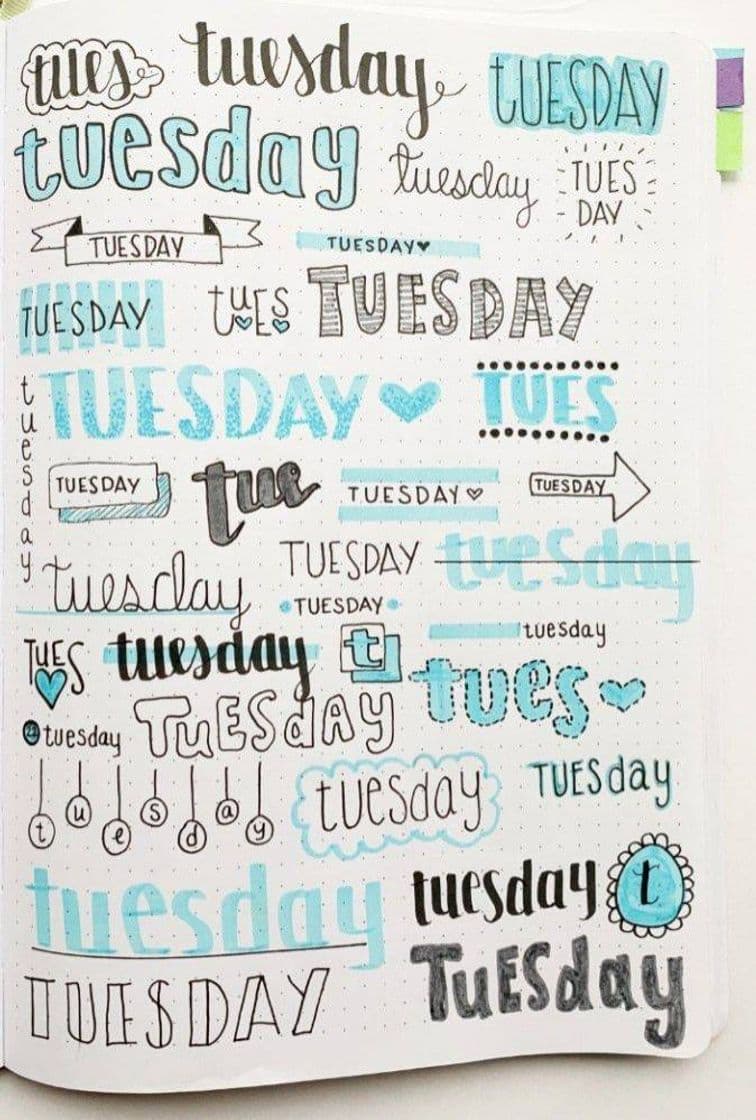 tues tuesday TUESDAY
tuesday tuesday TUES
DAY
TUESDAY TUESDAY♥
TUESDAY tUES TUESDAY
TUESDAY TUES
tuesday
TUESDAY tue TUESDAY♡ TUESDAY
tuesday TUESDAY tuesday
TUESDAY
TUES tuesday t tuesday
tues
tuesday TuESdAY
tuesday tuesday TUESday
tuesday tuesday t
TUESDAY TuESday